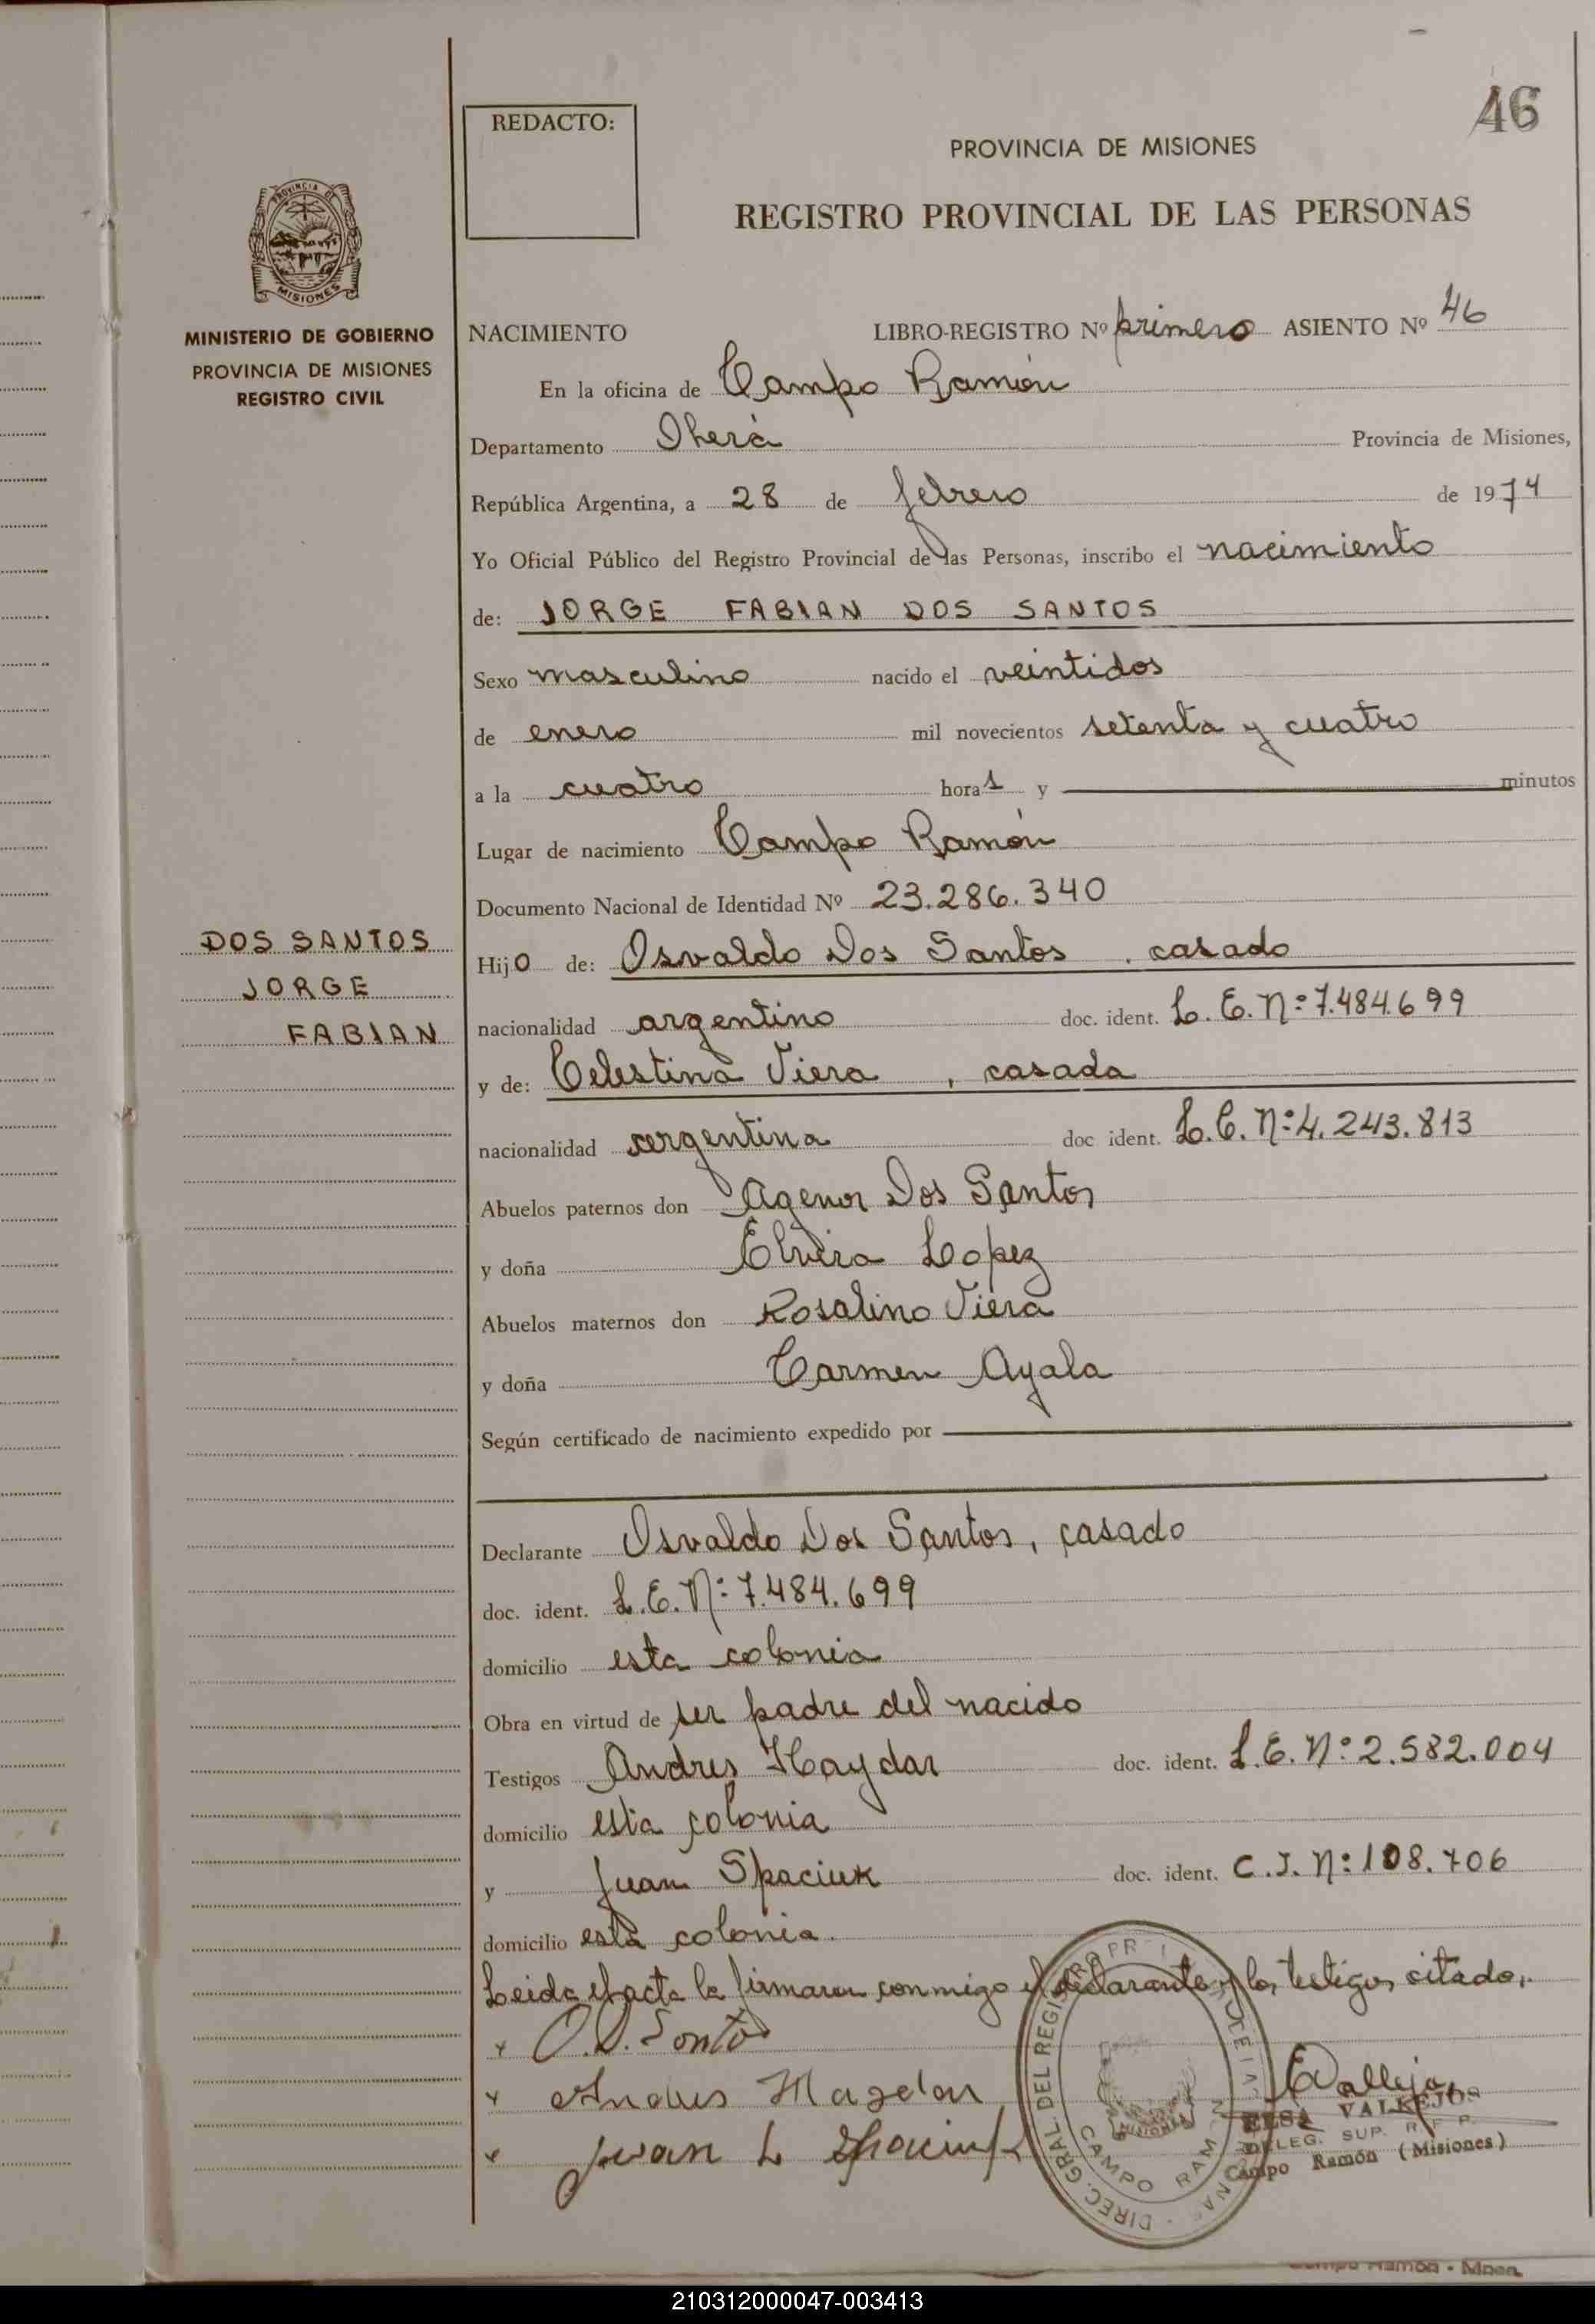 46
REDACTO:
PROVINCIA DE MISIONES
REGISTRO PROVINCIAL DE LAS PERSONAS
PROVINCIA DE
MISIONES
MINISTERIO DE GOBIERNO
PROVINCIA DE MISIONES
REGISTRO CIVIL
NACIMIENTO LIBRO-REGISTRO Nº primero ASIENTO Nº 46
En la oficina de Campo Ramón
Departamento Oberá Provincia de Misiones,
República Argentina, a 28 de febrero de 1974
Yo Oficial Público del Registro Provincial de las Personas, inscribo el nacimiento
de: JORGE FABIAN DOS SANTOS
Sexo masculino nacido el veintidos
de enero mil novecientos setenta y cuatro
a la cuatro horas y minutos
Lugar de nacimiento Campo Ramón
Documento Nacional de Identidad Nº 23.286.340
DOS SANTOS
JORGE
FABIAN
Hijo de: Osvaldo Dos Santos , casado
nacionalidad argentino doc. ident. L. E. Nº 7.484.699
y de: Celestina Viera , casada
nacionalidad argentina doc ident. L.C. Nº 4.243.813
Abuelos paternos don Agenor Dos Santos
y doña Elvira Lopez
Abuelos maternos don Rosalino Viera
y doña Carmen Ayala
Según certificado de nacimiento expedido por
Declarante Osvaldo Dos Santos, casado
doc. ident. L.E. Nº 7.484.699
domicilio esta colonia
Obra en virtud de ser padre del nacido
Testigos Andres Haydar doc. ident. L.E. Nº 2.582.004
domicilio esta colonia
y Juan Spaciuk doc. ident. C.I. Nº 108.706
domicilio esta colonia.
Leida el acta la firmaron conmigo el declarante y los testigos citados.
x O.D. Santo
x Andres
x Juan L Spaciuk
E Vallejos
ELSA VALLEJOS
DELEG. SUP. R. P. P.
Campo Ramón (Misiones)
DIREC. GRAL. DEL REGISTRO
CAMPO RAMON
MISIONES
Campo Ramon - Mnes.
210312000047-003413